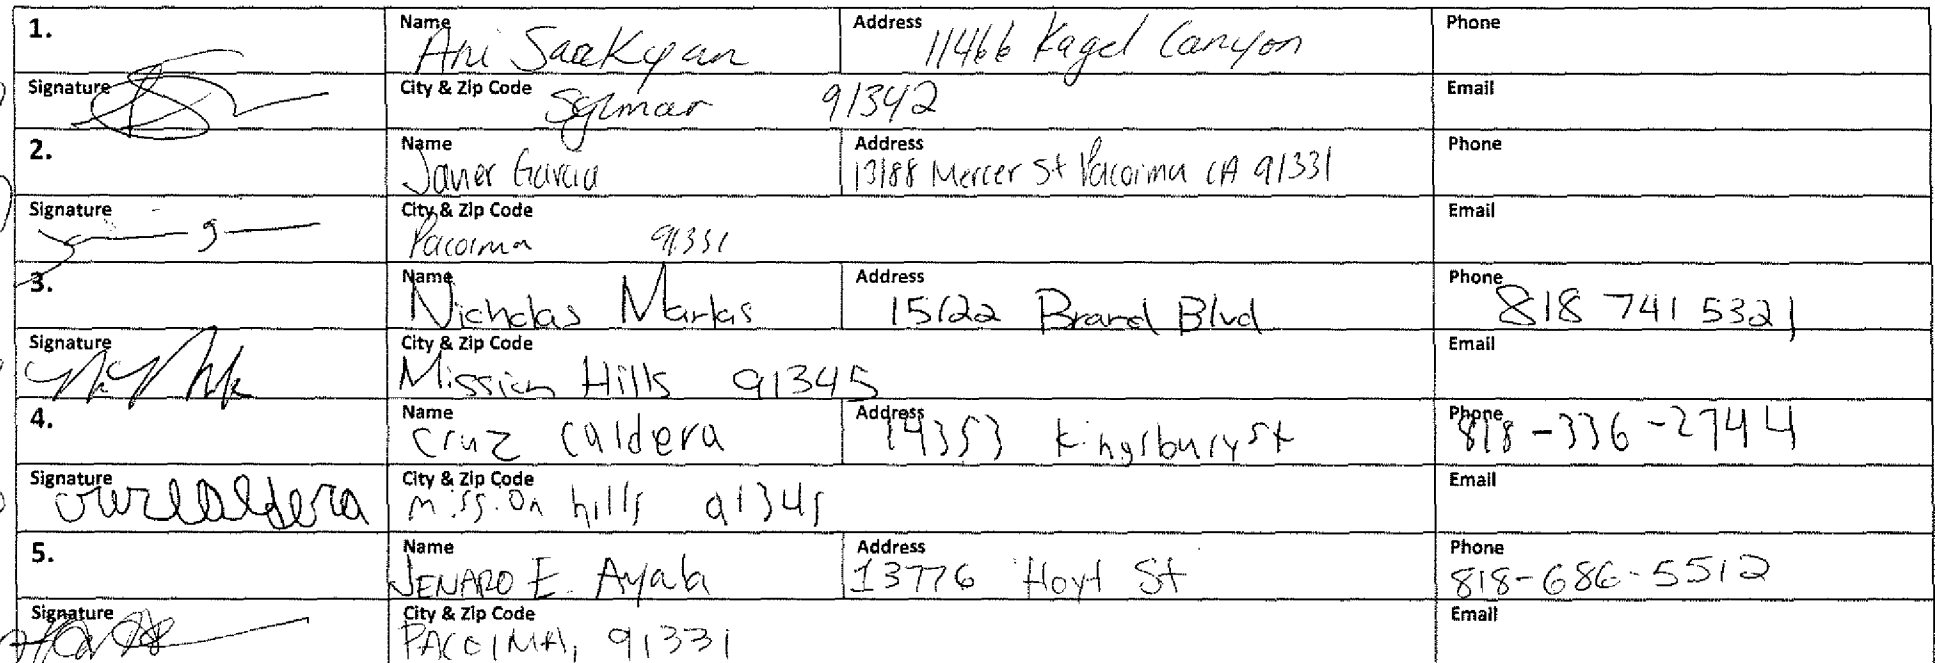 1. Name Ani Saakyan Address 11466 Kagel Canyon Phone
Signature City & Zip Code Sylmar 91342 Email
2. Name Javier Garcia Address 13188 Mercer St Pacoima CA 91331 Phone
Signature City & Zip Code Pacoima 91331 Email
3. Name Nicholas Markas Address 15122 Brand Blvd Phone 818 741 5321
Signature City & Zip Code Mission Hills 91345 Email
4. Name Cruz Caldera Address 14353 Kingsbury St Phone 818-336-2744
Signature cruz caldera City & Zip Code mission hills 91345 Email
5. Name JENARO E. Ayala Address 13776 Hoyt St Phone 818-686-5512
Signature City & Zip Code PACOIMA, 91331 Email